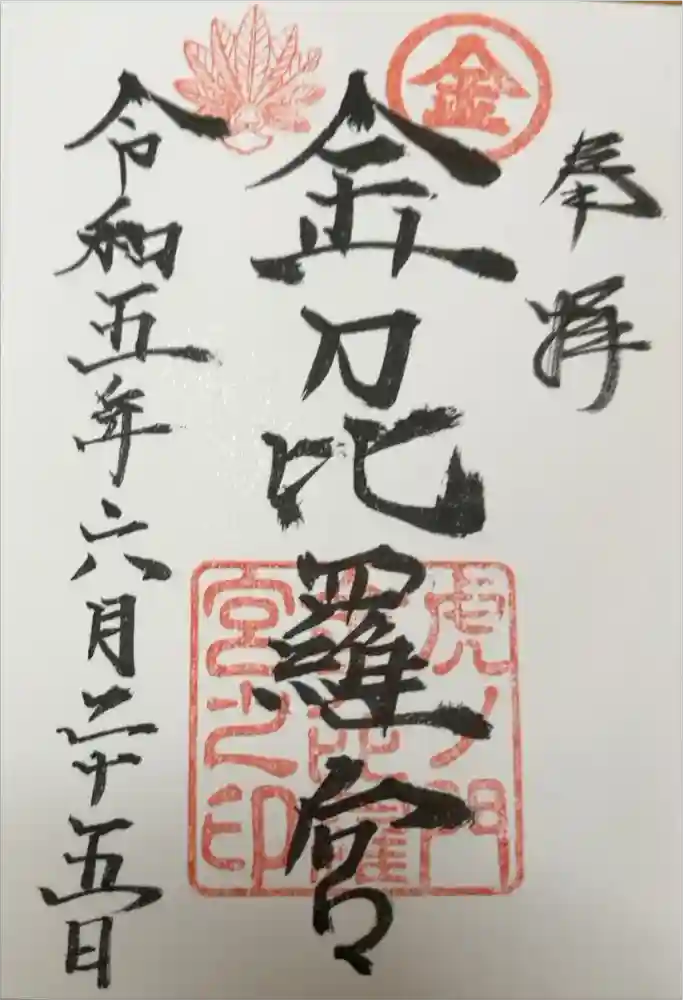 奉拝
金
金刀比羅宮
虎ノ門
金刀比羅
宮之印
令和五年六月二十五日